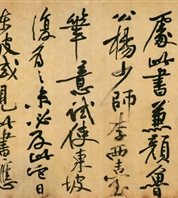 處此書兼顏魯
公楊少師李西臺
筆意試使東坡
復為之未必及此它日
東坡或見此書應